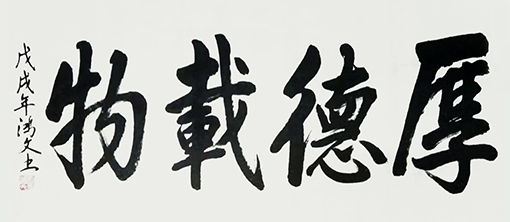 厚德載物
戊戌年鴻文书